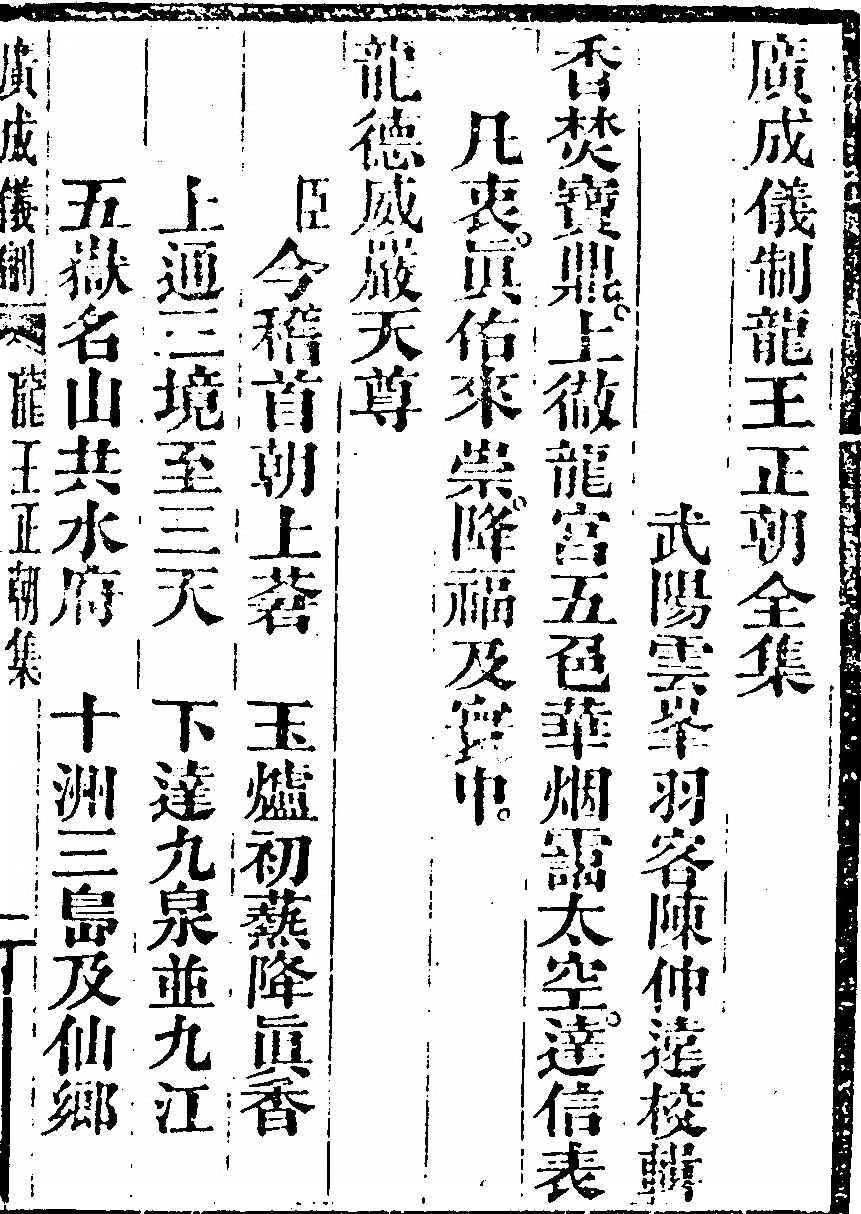 廣成儀制龍王正朝全集
武陽雲峯羽客陳仲遠校輯
香焚寶鼎。上徹龍宮五色華烟靄太空。達信表
凡衷。眞佑來崇。降福及寰中。
龍德威嚴天尊
臣今稽首朝上蒼　玉爐初爇降眞香
上通三境至三天　下達九泉並九江
五嶽名山共水府　十洲三島及仙鄉
廣成儀制　龍王正朝集　一